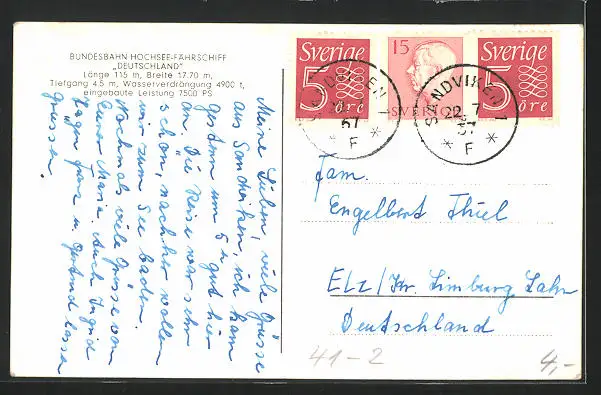 BUNDESBAHN HOCHSEE-FÄHRSCHIFF
„DEUTSCHLAND"
Länge 115 m, Breite 17.70 m,
Tiefgang 4.5 m, Wasserverdrängung 4900 t,
eingebaute Leistung 7500 PS
Meine Lieben, viele Grüsse
aus Sandviken, ich kam
gestern um 5 u gut hier
an. Die Reise war sehr
schön, nachher wollen
wir zum See baden.
Nochmals viele Grüsse von
Eurer Maria. Auch Ingrid
u. Gertrud lassen
grüssen.
Sverige
5
öre
15
SVERIGE
Sverige
5
öre
SANDVIKEN
57
F
SANDVIKEN 1
22 7
57
F
Fam.
Engelbert Thiel
Elz/Kr. Limburg Lahn
Deutschland
41-2
4,-